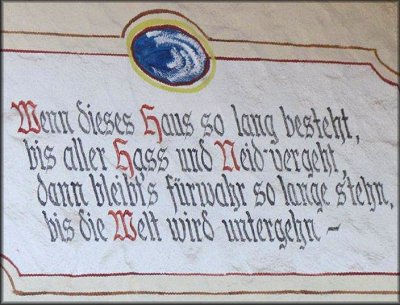 Wenn dieses Haus so lang besteht,
bis aller Hass und Neid vergeht,
dann bleibt's fürwahr so lange stehn,
bis die Welt wird untergehn –